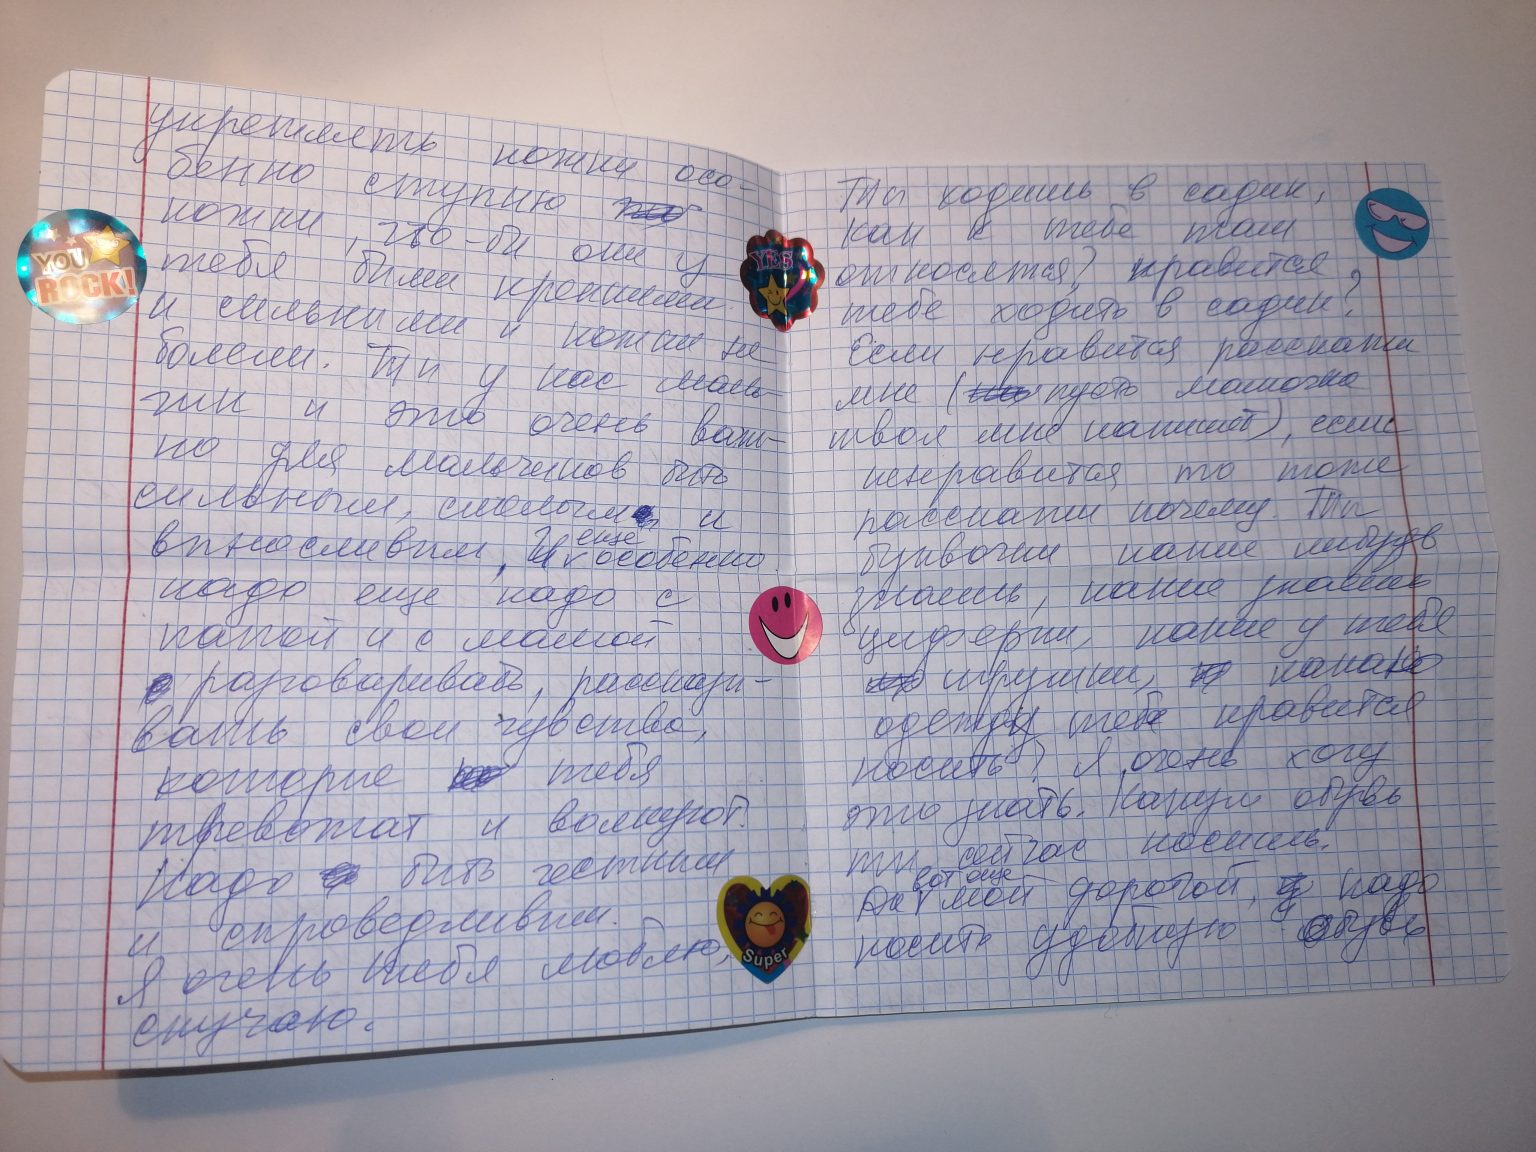 укреплять ножки осо-
бенно ступню
ножки, что-бы они у
тебя были крепкими
и сильными и ножки не
болели. Ты у нас маль-
чик и это очень важ-
но для мальчиков быть
сильным, смелым и
выносливым, И еще особенно
надо еще надо с
папой и с мамой
разговаривать, рассказы-
вать свои чувства,
которые тебя
тревожат и волнуют.
Надо быть честным
и справедливым.
Я очень тебя люблю,
скучаю.
Ты ходишь в садик,
как к тебе там
относятся? нравится
тебе ходить в садик?
Если нравится расскажи
мне (пусть мамочка
твоя мне напишет), если
ненравится то тоже
расскажи почему. Ты
буквочки какие нибудь
знаешь, какие знаешь
циферки, какие у тебя
игрушки, какаю
одежду тебе нравится
носить? Я очень хочу
это знать. Какую обувь
ты сейчас носишь.
Да вот еще мой дорогой, надо
носить удобную обувь
YOU ROCK!
YES
Super